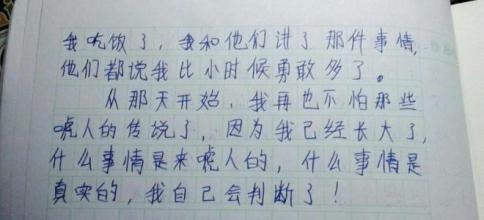 我吃饭了，我和他们讲了那件事情，
他们都说我比小时候勇敢多了。
从那天开始，我再也不怕那些
唬人的传说了，因为我已经长大了，
什么事情是来唬人的，什么事情是
真实的，我自己会判断了！